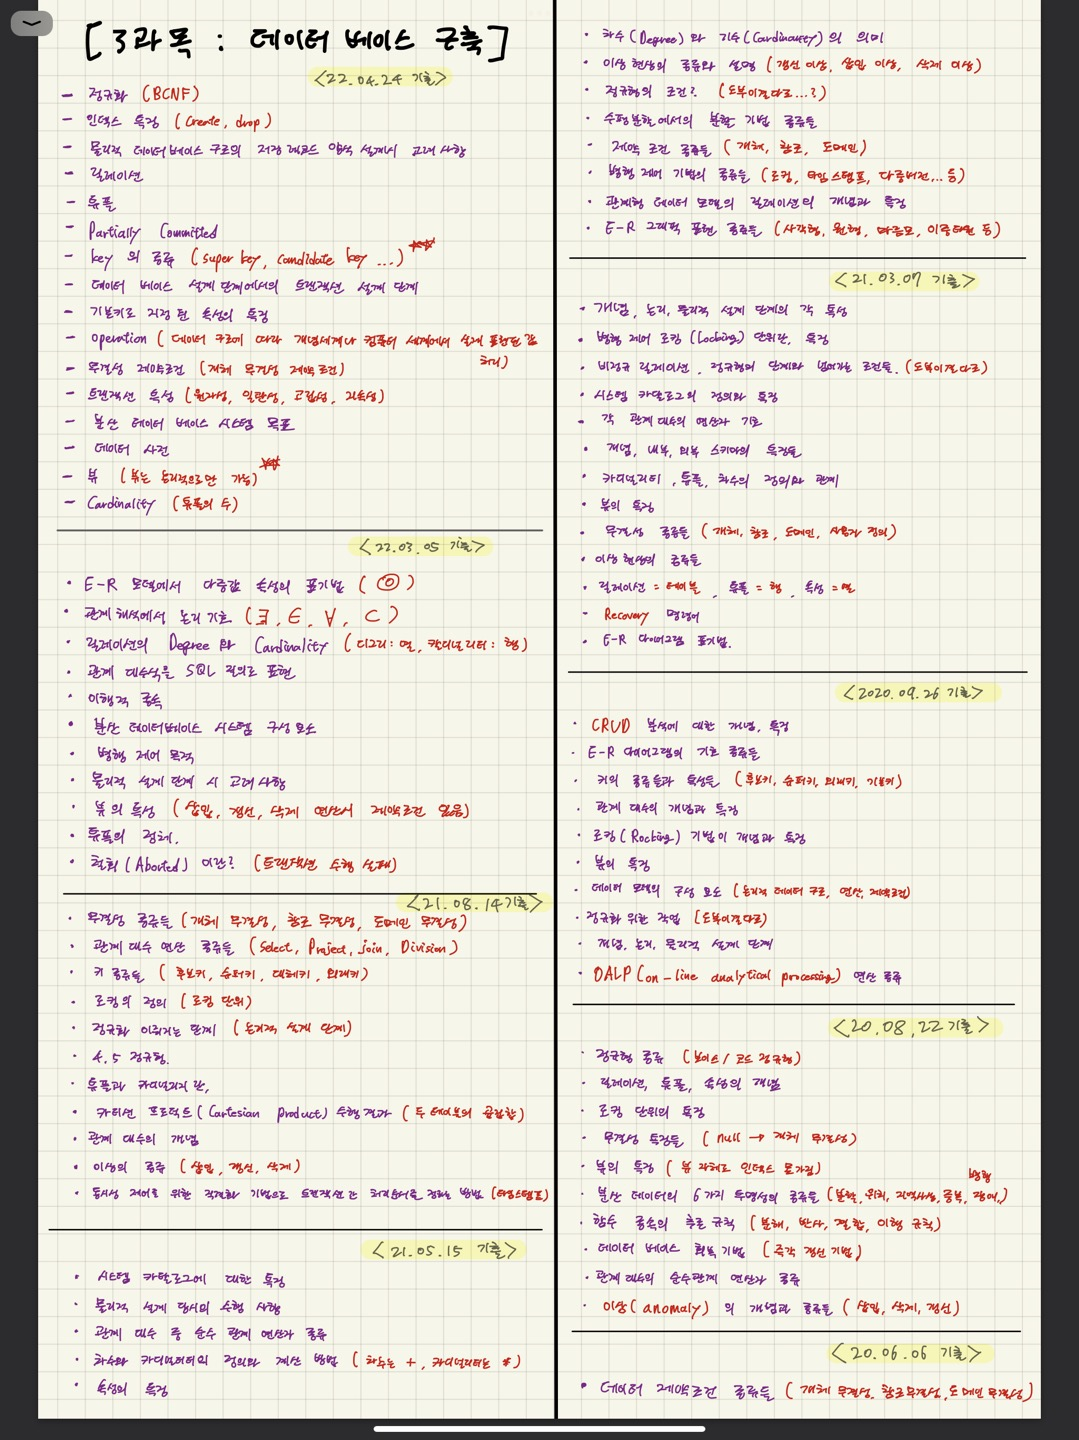 [3과목 : 데이터 베이스 구축]
<22.04.24 기출>
- 정규화 (BCNF)
- 인덱스 특징 (Create, drop)
- 물리적 데이터베이스 구조의 저장 레코드 양식 설계시 고려 사항
- 릴레이션
- 튜플
- Partially Committed
- key 의 종류 (super key, candidate key ...)
- 데이터 베이스 설계 단계에서의 트랜잭션 설계 단계
- 기본키로 지정 된 속성의 특징
- Operation (데이터 구조에 따라 개념세계나 컴퓨터 세계에서 실제 표현된 값
처리)
- 무결성 제약조건 (개체 무결성 제약 조건)
- 트랜잭션 특성 (원자성, 일관성, 고립성, 지속성)
- 분산 데이터 베이스 시스템 목표
- 데이터 사전
- 뷰 (뷰는 논리적으로만 가능)
- Cardinality (튜플의 수)
<22.03.05 기출>
• E-R 모델에서 다중값 속성의 표기법 (◎)
• 관계 해석에서 논리 기호 (∃, ∈, ∀, ⊂)
• 릴레이션의 Degree 와 Cardinality (디그리 : 열, 카디널리티 : 행)
• 관계 대수식을 SQL 질의로 표현
• 이행적 종속
• 분산 데이터베이스 시스템 구성 요소
• 병행 제어 목적
• 물리적 설계 단계 시 고려 사항
• 뷰의 특성 (삽입, 갱신, 삭제 연산시 제약조건 있음)
• 튜플의 정체.
• 철회 (Aborted) 이란? (트랜잭션 수행 실패)
<21.08.14 기출>
• 무결성 종류들 (개체 무결성, 참조 무결성, 도메인 무결성)
• 관계 대수 연산 종류들 (Select, Project, join, Division)
• 키 종류들 (후보키, 슈퍼키, 대체키, 외래키)
• 로킹의 정의 (로킹 단위)
• 정규화 이뤄지는 단계 (논리적 설계 단계)
• 4, 5 정규형.
• 튜플과 카디널리티란,
• 카티션 프로덕트 (Cartesian product) 수행 결과 (두 테이블의 곱집합)
• 관계 대수의 개념
• 이상의 종류 (삽입, 갱신, 삭제)
• 동시성 제어를 위한 직렬화 기법으로 트랜잭션 간 처리순서를 정하는 방법 (타임스탬프)
<21.05.15 기출>
• 시스템 카탈로그에 대한 특징
• 물리적 설계 당시의 수행 사항
• 관계 대수 중 순수 관계 연산자 종류
• 차수와 카디널리티의 정의와 계산 방법 (차수는 +, 카디널리티는 *)
• 속성의 특징
• 차수 (Degree) 와 기수 (Cardinality) 의 의미
• 이상 현상의 종류와 설명 (갱신 이상, 삽입 이상, 삭제 이상)
• 정규형의 조건? (도부이결다조...?)
• 수평분할에서의 분할 기법 종류들
• 제약 조건 종류들 (개체, 참조, 도메인)
• 병행 제어 기법의 종류들 (로킹, 타임스탬프, 다중버전... 등)
• 관계형 데이터 모델의 릴레이션의 개념과 특징
• E-R 그래픽 표현 종류들 (사각형, 원형, 마름모, 이중타원 등)
<21.03.07 기출>
• 개념, 논리, 물리적 설계 단계의 각 특성
• 병행 제어 로킹 (Locking) 단위란, 특징
• 비정규 릴레이션, 정규형의 단계와 넘어가는 조건들. (도부이결다조)
• 시스템 카탈로그의 정의와 특징
• 각 관계 대수의 연산자 기호
• 개념, 내부, 외부 스키마의 특징들
• 카디널리티, 튜플, 차수의 정의와 관계
• 뷰의 특징
• 무결성 종류들 (개체, 참조, 도메인, 사용자 정의)
• 이상 현상의 종류들
• 릴레이션 = 테이블, 튜플 = 행, 속성 = 열
• Recovery 명령어
• E-R 다이어그램 표기법.
<2020.09.26 기출>
• CRUD 분석에 대한 개념, 특징
• E-R 다이어그램의 기호 종류들
• 키의 종류들과 특성들 (후보키, 슈퍼키, 외래키, 기본키)
• 관계 대수의 개념과 특징
• 로킹 (Rocking) 기법이 개념과 특징
• 뷰의 특징
• 데이터 모델의 구성 요소 (논리적 데이터 구조, 연산, 제약조건)
• 정규화 위한 작업 (도부이결다조)
• 개념, 논리, 물리적 설계 단계
• OALP (on-line analytical processing) 연산 종류
<20.08.22 기출>
• 정규형 종류 (보이스/코드 정규형)
• 릴레이션, 튜플, 속성의 개념
• 로킹 단위의 특징
• 무결성 특징들 (null → 개체 무결성)
• 뷰의 특징 (뷰 자체로 인덱스 불가함)
병행
• 분산 데이터의 6가지 투명성의 종류들 (분할, 위치, 지역사상, 중복, 장애,)
• 함수 종속의 추론 규칙 (분해, 반사, 결합, 이행 규칙)
• 데이터 베이스 회복 기법 (즉각 갱신 기법)
• 관계 대수의 순수관계 연산자 종류
• 이상 (anomaly) 의 개념과 종류들 (삽입, 삭제, 갱신)
<20.06.06 기출>
• 데이터 제약조건 종류들 (개체 무결성, 참조무결성, 도메인 무결성)